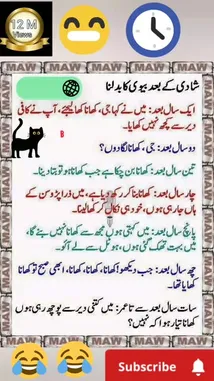 12 M
Views
MAW MAW MAW MAW MAW
شادی کے بعد بیوی کا بدلنا
ایک سال بعد: میں نے کہا جی، کھانا کھا لیجئے، آپ نے کافی
دیر سے کچھ نہیں کھایا۔
B
دو سال بعد: جی، کھانا لگا دوں؟
تین سال بعد: کھانا بن چکا ہے جب کھانا ہو تو بتا دینا۔
چار سال بعد: کھانا بنا کر رکھ دیا ہے، میں ذرا پڑوسن کے
ہاں جا رہی ہوں، خود ہی نکال کر کھا لینا۔
پانچ سال بعد: میں کہتی ہوں آج مجھ سے کھانا نہیں بنے گا،
میں بہت تھک گئی ہوں، ہوٹل سے لے آؤ۔
چھ سال بعد: جب دیکھو! کھانا، کھانا، کھانا، ابھی صبح تو کھانا
کھایا تھا۔
سات سال بعد سے تا عمر: میں کتنی دیر سے پوچھ رہی ہوں
کھانا تیار ہوا کہ نہیں؟
MAW MAW MAW MAW MAW
Subscribe